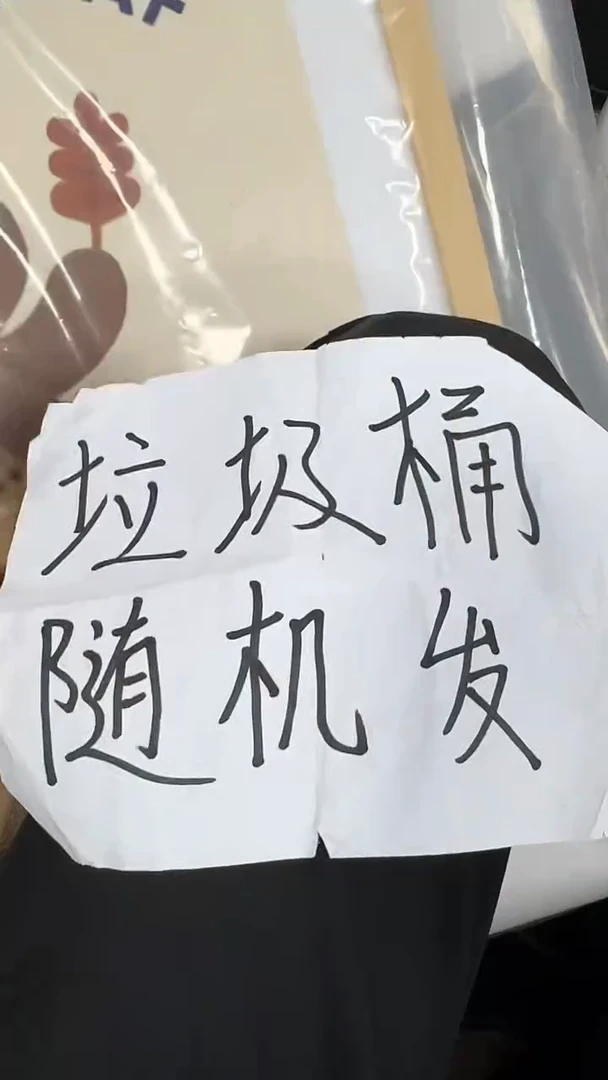 垃圾桶
随机发